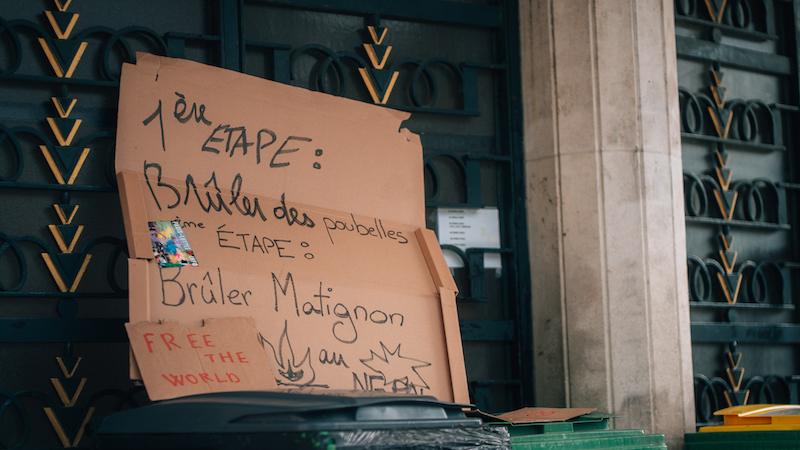 1ère ETAPE :
Brûler des poubelles
ème ÉTAPE :
Brûler Matignon
au
FREE
THE
WORLD